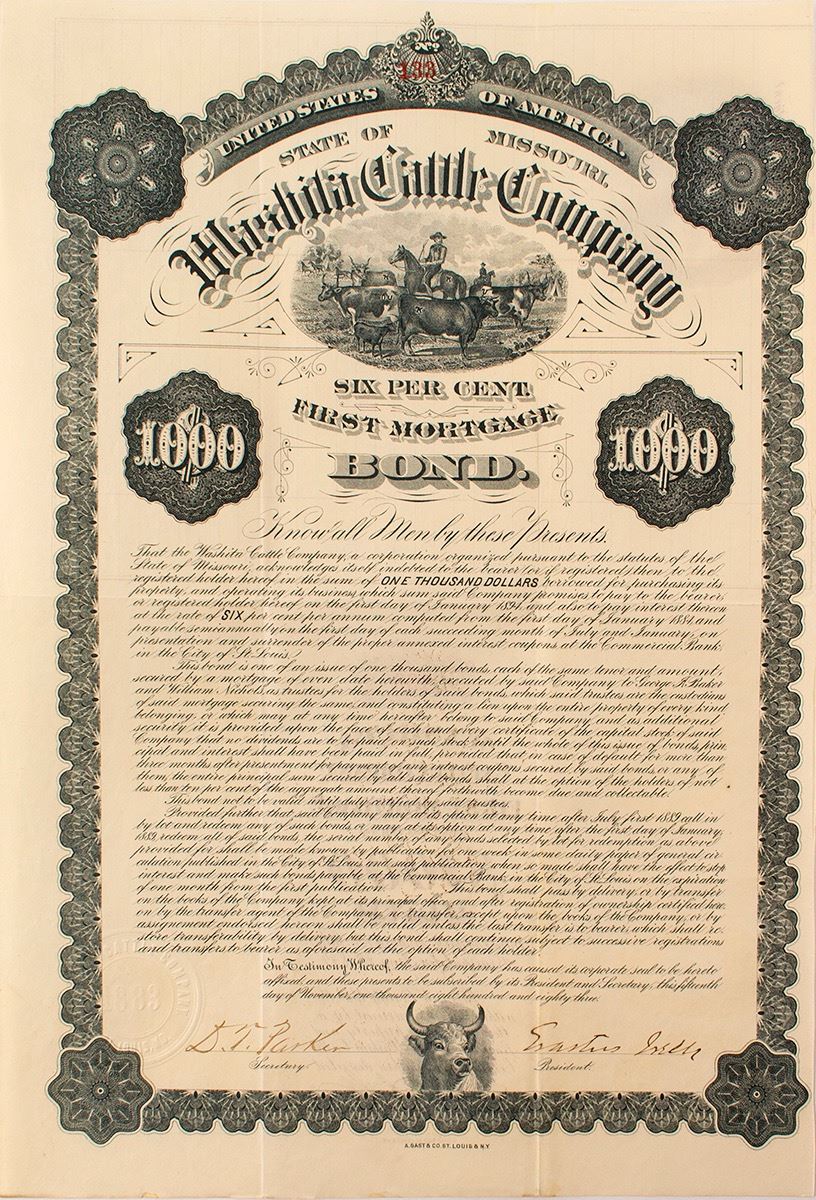 No
133
UNITED STATES OF AMERICA.
STATE OF MISSOURI.
Washita Cattle Company
SIX PER CENT.
FIRST MORTGAGE
BOND.
$1000
$1000
Know all Men by these Presents.
That the Washita Cattle Company, a corporation organized pursuant to the statutes of the
State of Missouri, acknowledges itself indebted to the bearer (or if registered) then to the
registered holder hereof in the sum of ONE THOUSAND DOLLARS borrowed for purchasing its
property, and operating its business, which sum said Company promises to pay to the bearer,
or registered holder hereof on the first day of January 1894, and also to pay interest thereon
at the rate of SIX per cent per annum computed from the first day of January 1884 and
payable semiannually on the first day of each succeeding month of July and January, on
presentation and surrender of the proper annexed interest coupons at the Commercial Bank
in the City of St. Louis.
This bond is one of an issue of one thousand bonds, each of the same tenor and amount,
secured by a mortgage of even date herewith, executed by said Company to George J. Baker
and William Nichols, as trustees for the holders of said bonds, which said trustees are the custodians
of said mortgage securing the same, and constituting a lien upon the entire property of every kind
belonging, or which may at any time hereafter belong to said Company, and as additional
security, it is provided upon the face of each and every certificate of the capital stock of said
Company that no dividends are to be paid on such stock until the whole of this issue of bonds, prin
cipal and interest shall have been paid in full, provided that in case of default for more than
three months after presentment for payment of any interest coupons secured by said bonds, or any of
them, the entire principal sum secured by all said bonds shall at the option of the holders of not
less than ten per cent of the aggregate amount thereof forthwith become due and collectable.
This bond not to be valid until duly certified by said trustees.
Provided further that said Company may at its option at any time after July first 1889 call in
by lot and redeem any of such bonds, or may at its option at any time after the first day of January
1889, redeem all of said bonds, the serial number of any bonds selected by lot for redemption as above
provided for shall be made known by publication for one week in some daily paper of general cir
culation published in the City of St. Louis and such publication when so made shall have the effect to stop
interest and make such bonds payable at the Commercial Bank in the City of St. Louis on the expiration
of one month from the first publication. This bond shall pass by delivery, or by transfer
on the books of the Company kept at its principal office, and after registration of ownership certified here
on by the transfer agent of the Company, no transfer, except upon the books of the Company, or by
assignment endorsed hereon shall be valid unless the last transfer is to bearer, which shall re-
store transferability by delivery, but this bond shall continue subject to successive registrations
and transfers to bearer as aforesaid at the option of each holder.
In Testimony Whereof, the said Company has caused its corporate seal to be hereto
affixed, and these presents to be subscribed by its President and Secretary, this fifteenth
day of November, one thousand eight hundred and eighty three.
D. T. Parker
Erastus Wells
Secretary.
President.
A. GAST & CO. ST. LOUIS & N.Y.